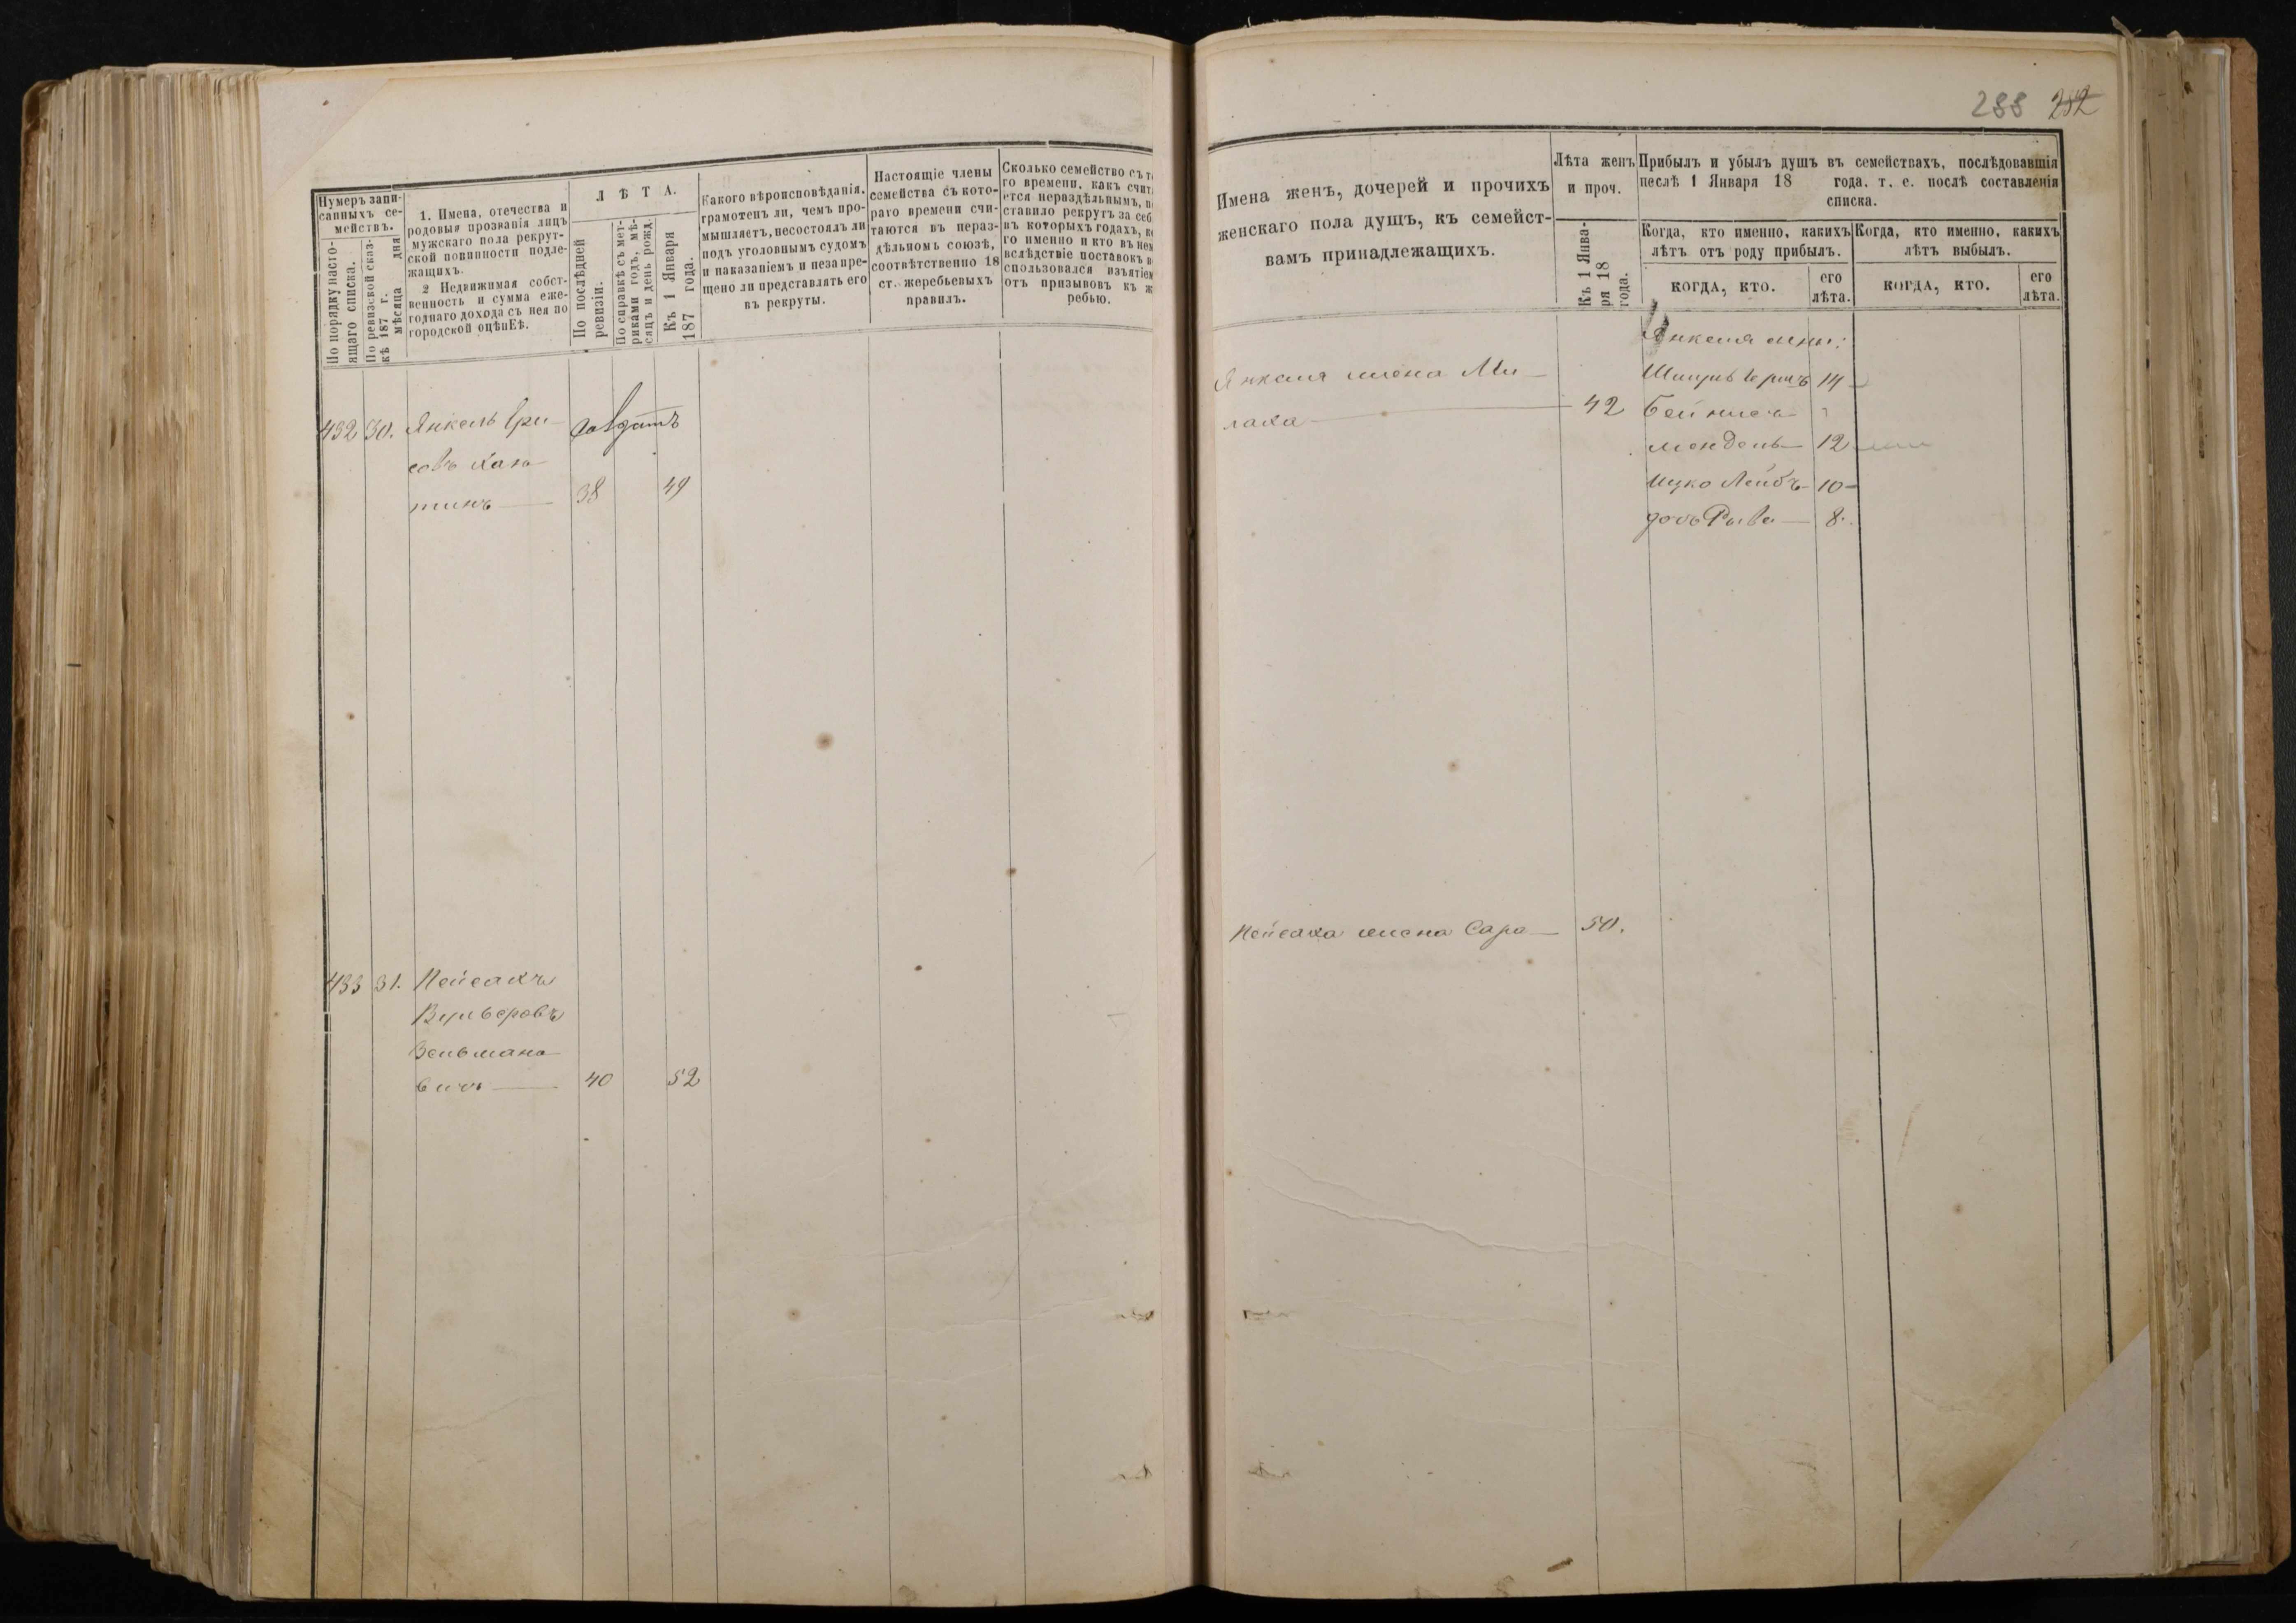 Нумеръ запи-
санныхъ се-
мействъ.
По порядку насто-
ящаго списка.
По ревизской сказ-
кѣ 187 г.
мѣсяца дня
1. Имена, отечества и
родовыя прозванія лицъ
мужскаго пола рекрут-
ской повинности подле-
жащихъ.
2 Недвижимая собст-
венность и сумма еже-
годнаго дохода съ нея по
городской оцѣнкѣ.
ЛѢТА.
По послѣдней
ревизіи.
По справкѣ съ мет-
риками годъ, мѣ-
сяцъ и день рожд.
Къ 1 Января
187 года.
Какого вѣроисповѣданія,
грамотенъ ли, чемъ про-
мышляетъ, несостоялъ ли
подъ уголовнымъ судомъ
и наказаніемъ и незапре-
щено ли представлять его
въ рекруты.
Настоящіе члены
семейства съ кото-
раго времени счи-
таются въ нераз-
дѣльномъ союзѣ,
соотвѣтственно 18
ст. жеребьевыхъ
правилъ.
Сколько семейство съ т
го времени, какъ счит
ется нераздѣльнымъ, п
ставило рекрутъ за себ
въ которыхъ годахъ, к
го именно и кто въ нем
вслѣдствіе поставокъ в
спользовался изъятіем
отъ призывовъ къ ж
ребью.
432 30. Янкель
38 49
433 31. Пейсахъ
Вульфовъ
Зельмано
вичъ 40 52
288 282
Имена женъ, дочерей и прочихъ
женскаго пола душъ, къ семейст-
вамъ принадлежащихъ.
Лѣта женъ
и проч.
Къ 1 Янва-
ря 18
года.
Прибылъ и убылъ душъ въ семействахъ, послѣдовавшія
песлѣ 1 Января 18 года. т. е. послѣ составленія
списка.
Когда, кто именно, какихъ
лѣтъ отъ роду прибылъ.
КОГДА, КТО.
его
лѣта.
Когда, кто именно, какихъ
лѣтъ выбылъ.
КОГДА, КТО.
его
лѣта.
Янкеля жена Ми
лаха 42
Янкеля
14
Бейниса
Мендель 12
Ицко Лейбъ 10
дочь Рива 8.
Пейсаха жена Сара 50.